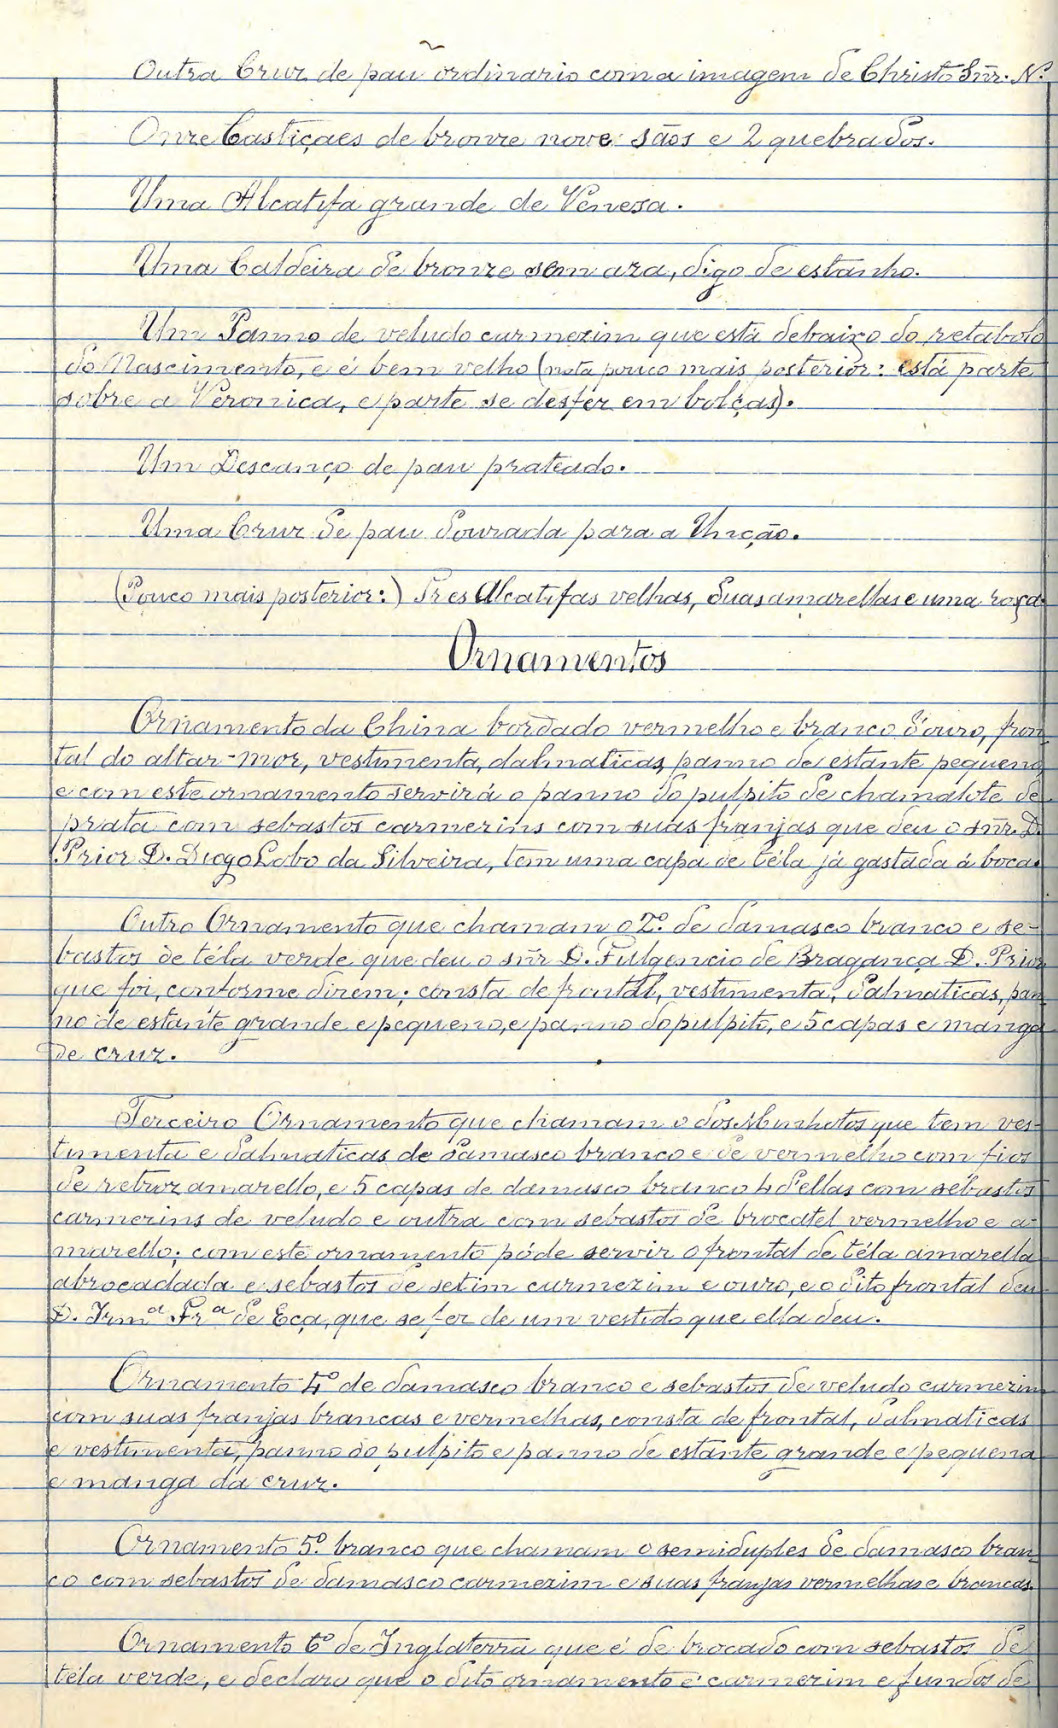 Outra Cruz de pau ordinario com a imagem de Christo Sñr. N.
Onze Castiçaes de bronze nove sãos e 2 quebrados.
Uma Alcatifa grande de Veneza.
Uma Caldeira de bronze sem aza, digo de estanho.
Um Panno de veludo carmezim que está debaixo do retabolo
do Nascimento, e é bem velho (nota pouco mais posterior: está parte
sobre a Veronica, e parte se desfez em bolças).
Um Descanço de pau prateado.
Uma Cruz de pau dourada para a Unção.
(Pouco mais posterior:) Tres Alcatifas velhas, duas amarellas e uma roxa.
Ornamentos
Ornamento da China bordado vermelho e branco d'ouro, fron-
tal do altar-mor, vestimenta, dalmaticas, panno de estante pequeno
e com este ornamento servirá o panno do pulpito de chamalote de
prata com sebastos carmezins com suas franjas que deu o sñr. D.
Prior D. Diogo Lobo da Silveira, tem uma capa de téla já gastada á boca.
Outro Ornamento que chamam o 2º. de damasco branco e se-
bastos de téla verde que deu o sñr D. Fulgencio de Bragança D. Prior
que foi, conforme dizem; consta de frontal, vestimenta, dalmaticas, pan-
no de estante grande e pequeno, e panno do pulpito, e 5 capas e manga
de cruz.
Terceiro Ornamento que chamam o dos Minhotos que tem ves-
timenta e dalmaticas de damasco branco e de vermelho com fios
de retroz amarello, e 5 capas de damasco branco 4 d'ellas com sebastos
carmezins de veludo e outra com sebastos de brocatel vermelho e a-
marello; com este ornamento póde servir o frontal de téla amarella
abrocadada e sebastos de setim carmezim e ouro, e o dito frontal deu
D. Irmª Frª de Eça, que se fez de um vestido que ella deu.
Ornamento 4º de damasco branco e sebastos de veludo carmezim
com suas franjas brancas e vermelhas, consta de frontal, dalmaticas
e vestimenta, panno do pulpito e panno de estante grande e pequena
e manga da cruz.
Ornamento 5º. branco que chamam o semiduples de damasco bran-
co com sebastos de damasco carmezim e suas franjas vermelhas e brancas.
Ornamento 6º de Inglaterra que é de brocado com sebastos de
téla verde, e declaro que o dito ornamento é carmezim e fundos de